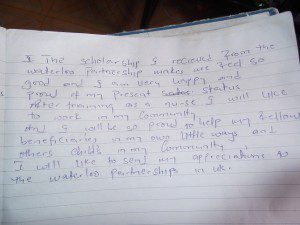 The scholarship I recieved from the
waterloo partnership makes me feel so
good and I am very happy and
proud of my present status
After training as a nurse I will like
to work in my community
And I will be so proud to help my fellow
beneficiaries in my own little ways and
others childs in my community
I will like to send my appreciations to
the waterloo partnerships in uk.